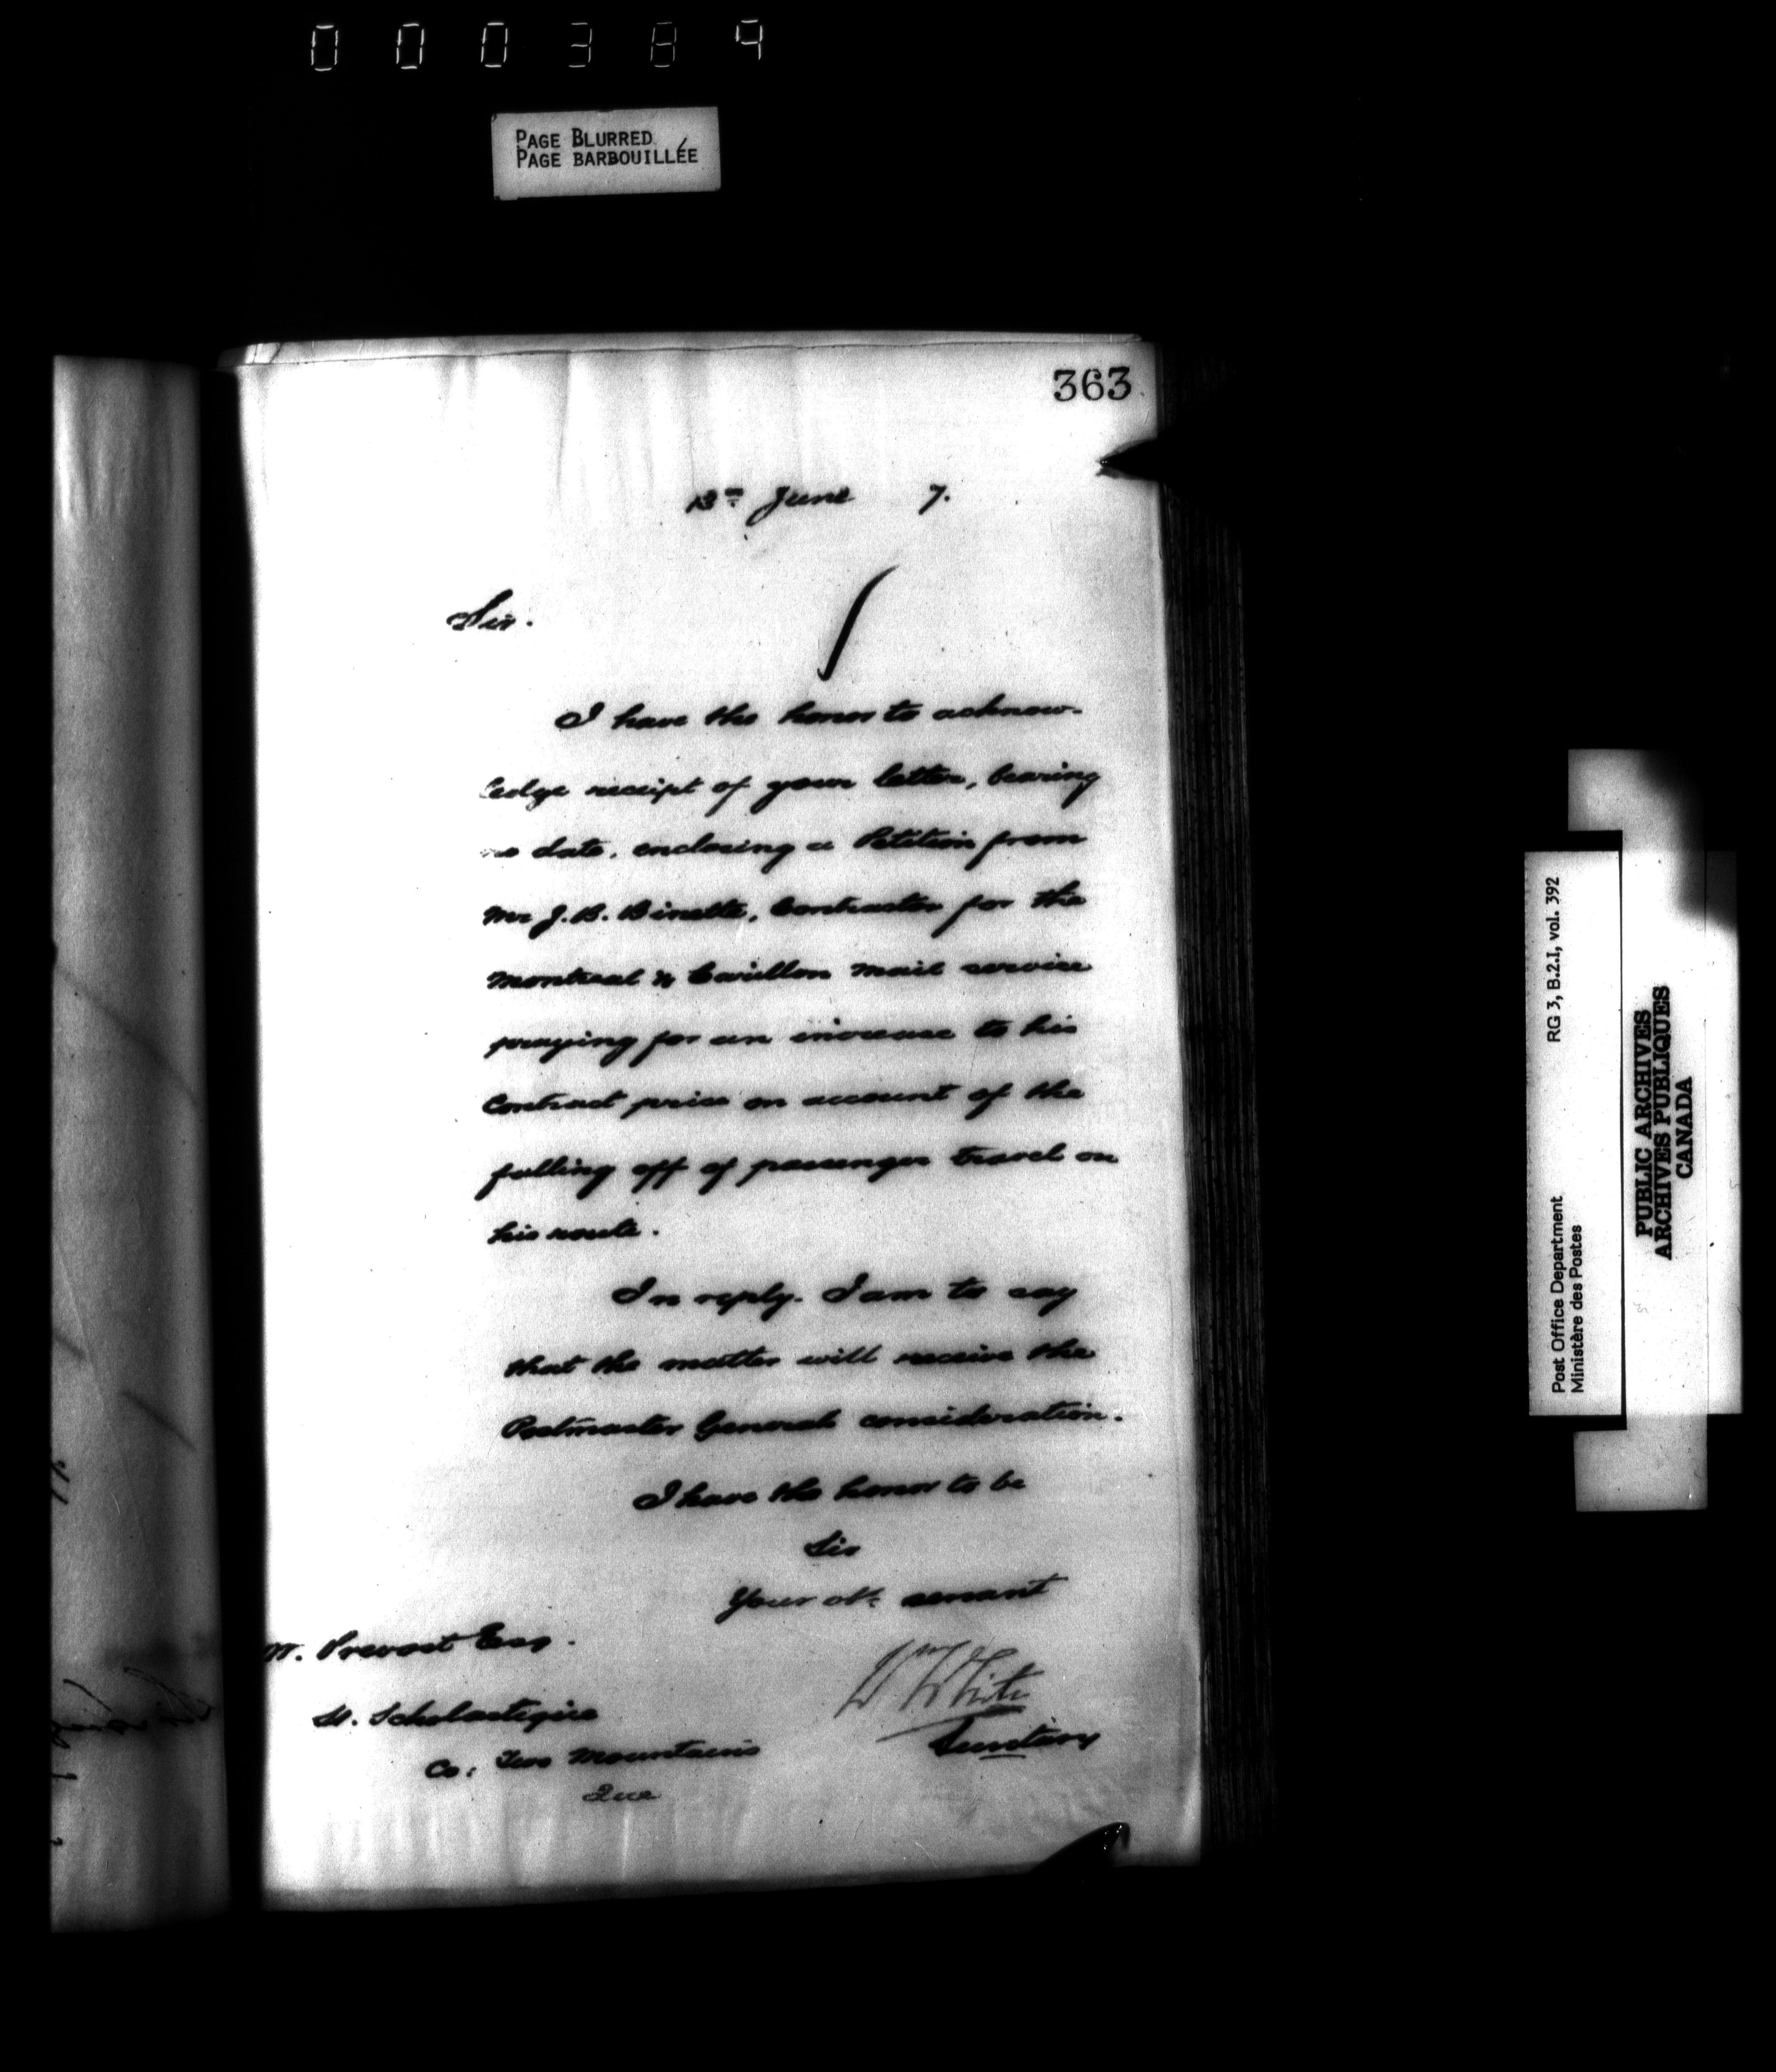 000384
PAGE BLURRED
PAGE BARBOUILLÉE
363
13th June 7.
Sir.
I have the honor to acknow-
ledge receipt of your letter, bearing
no date, enclosing a Petition from
Mr J.B. Binette, Contractor for the
Montreal & Carillon mail service
praying for an increase to his
Contract price on account of the
falling off of passenger travel on
his route.
In reply. I am to say
that the matter will receive the
Postmaster Generals consideration.
I have the honor to be
Sir
Your obt. servant
Wm White
Secretary
W. Prevost Esq.
St. Scholastique
Co: Two Mountains
Que
Post Office Department RG 3, B.2.I, vol. 392
Ministère des Postes
PUBLIC ARCHIVES
ARCHIVES PUBLIQUES
CANADA